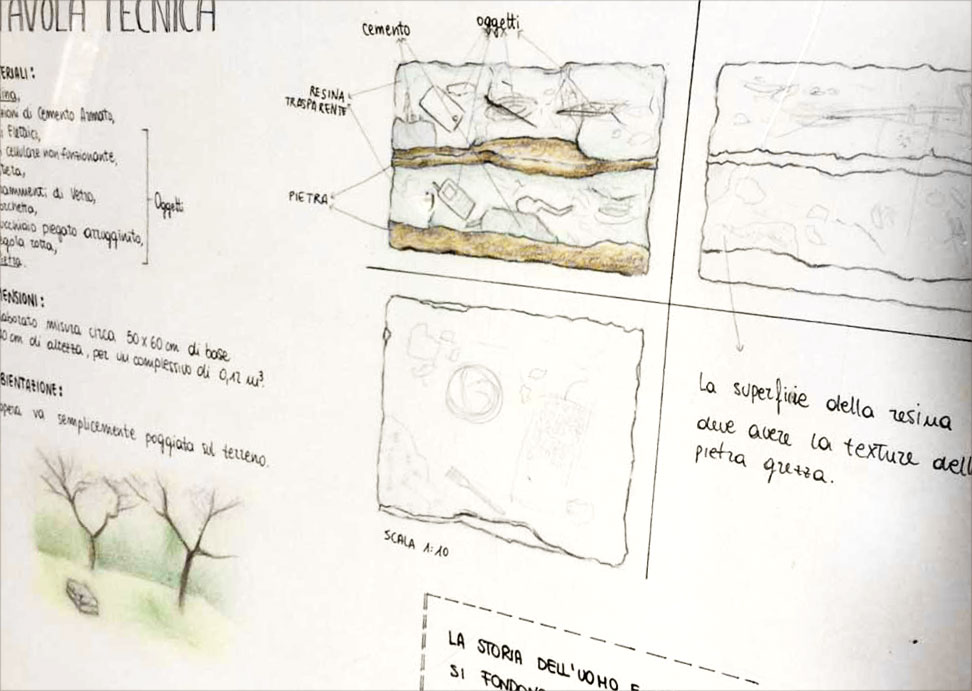 TAVOLA TECNICA
ERIALI:
ina,
zioni di Cemento Armato,
i Elettrici,
cellulare non funzionante,
tera,
rammenti di Vetro,
orchetta,
ucchiaio piegato arrugginito,
egola rotta,
ietra.
Oggetti
ENSIONI:
laborato misura circa 50x60 cm di base
40 cm di altezza, per un complessivo di 0,12 m³.
BIENTAZIONE:
opera va semplicemente poggiata sul terreno.
cemento
oggetti
RESINA
TRASPARENTE
PIETRA
SCALA 1:10
La superficie della resina
deve avere la texture dell
pietra grezza.
LA STORIA DELL'UOMO E
SI FONDONO